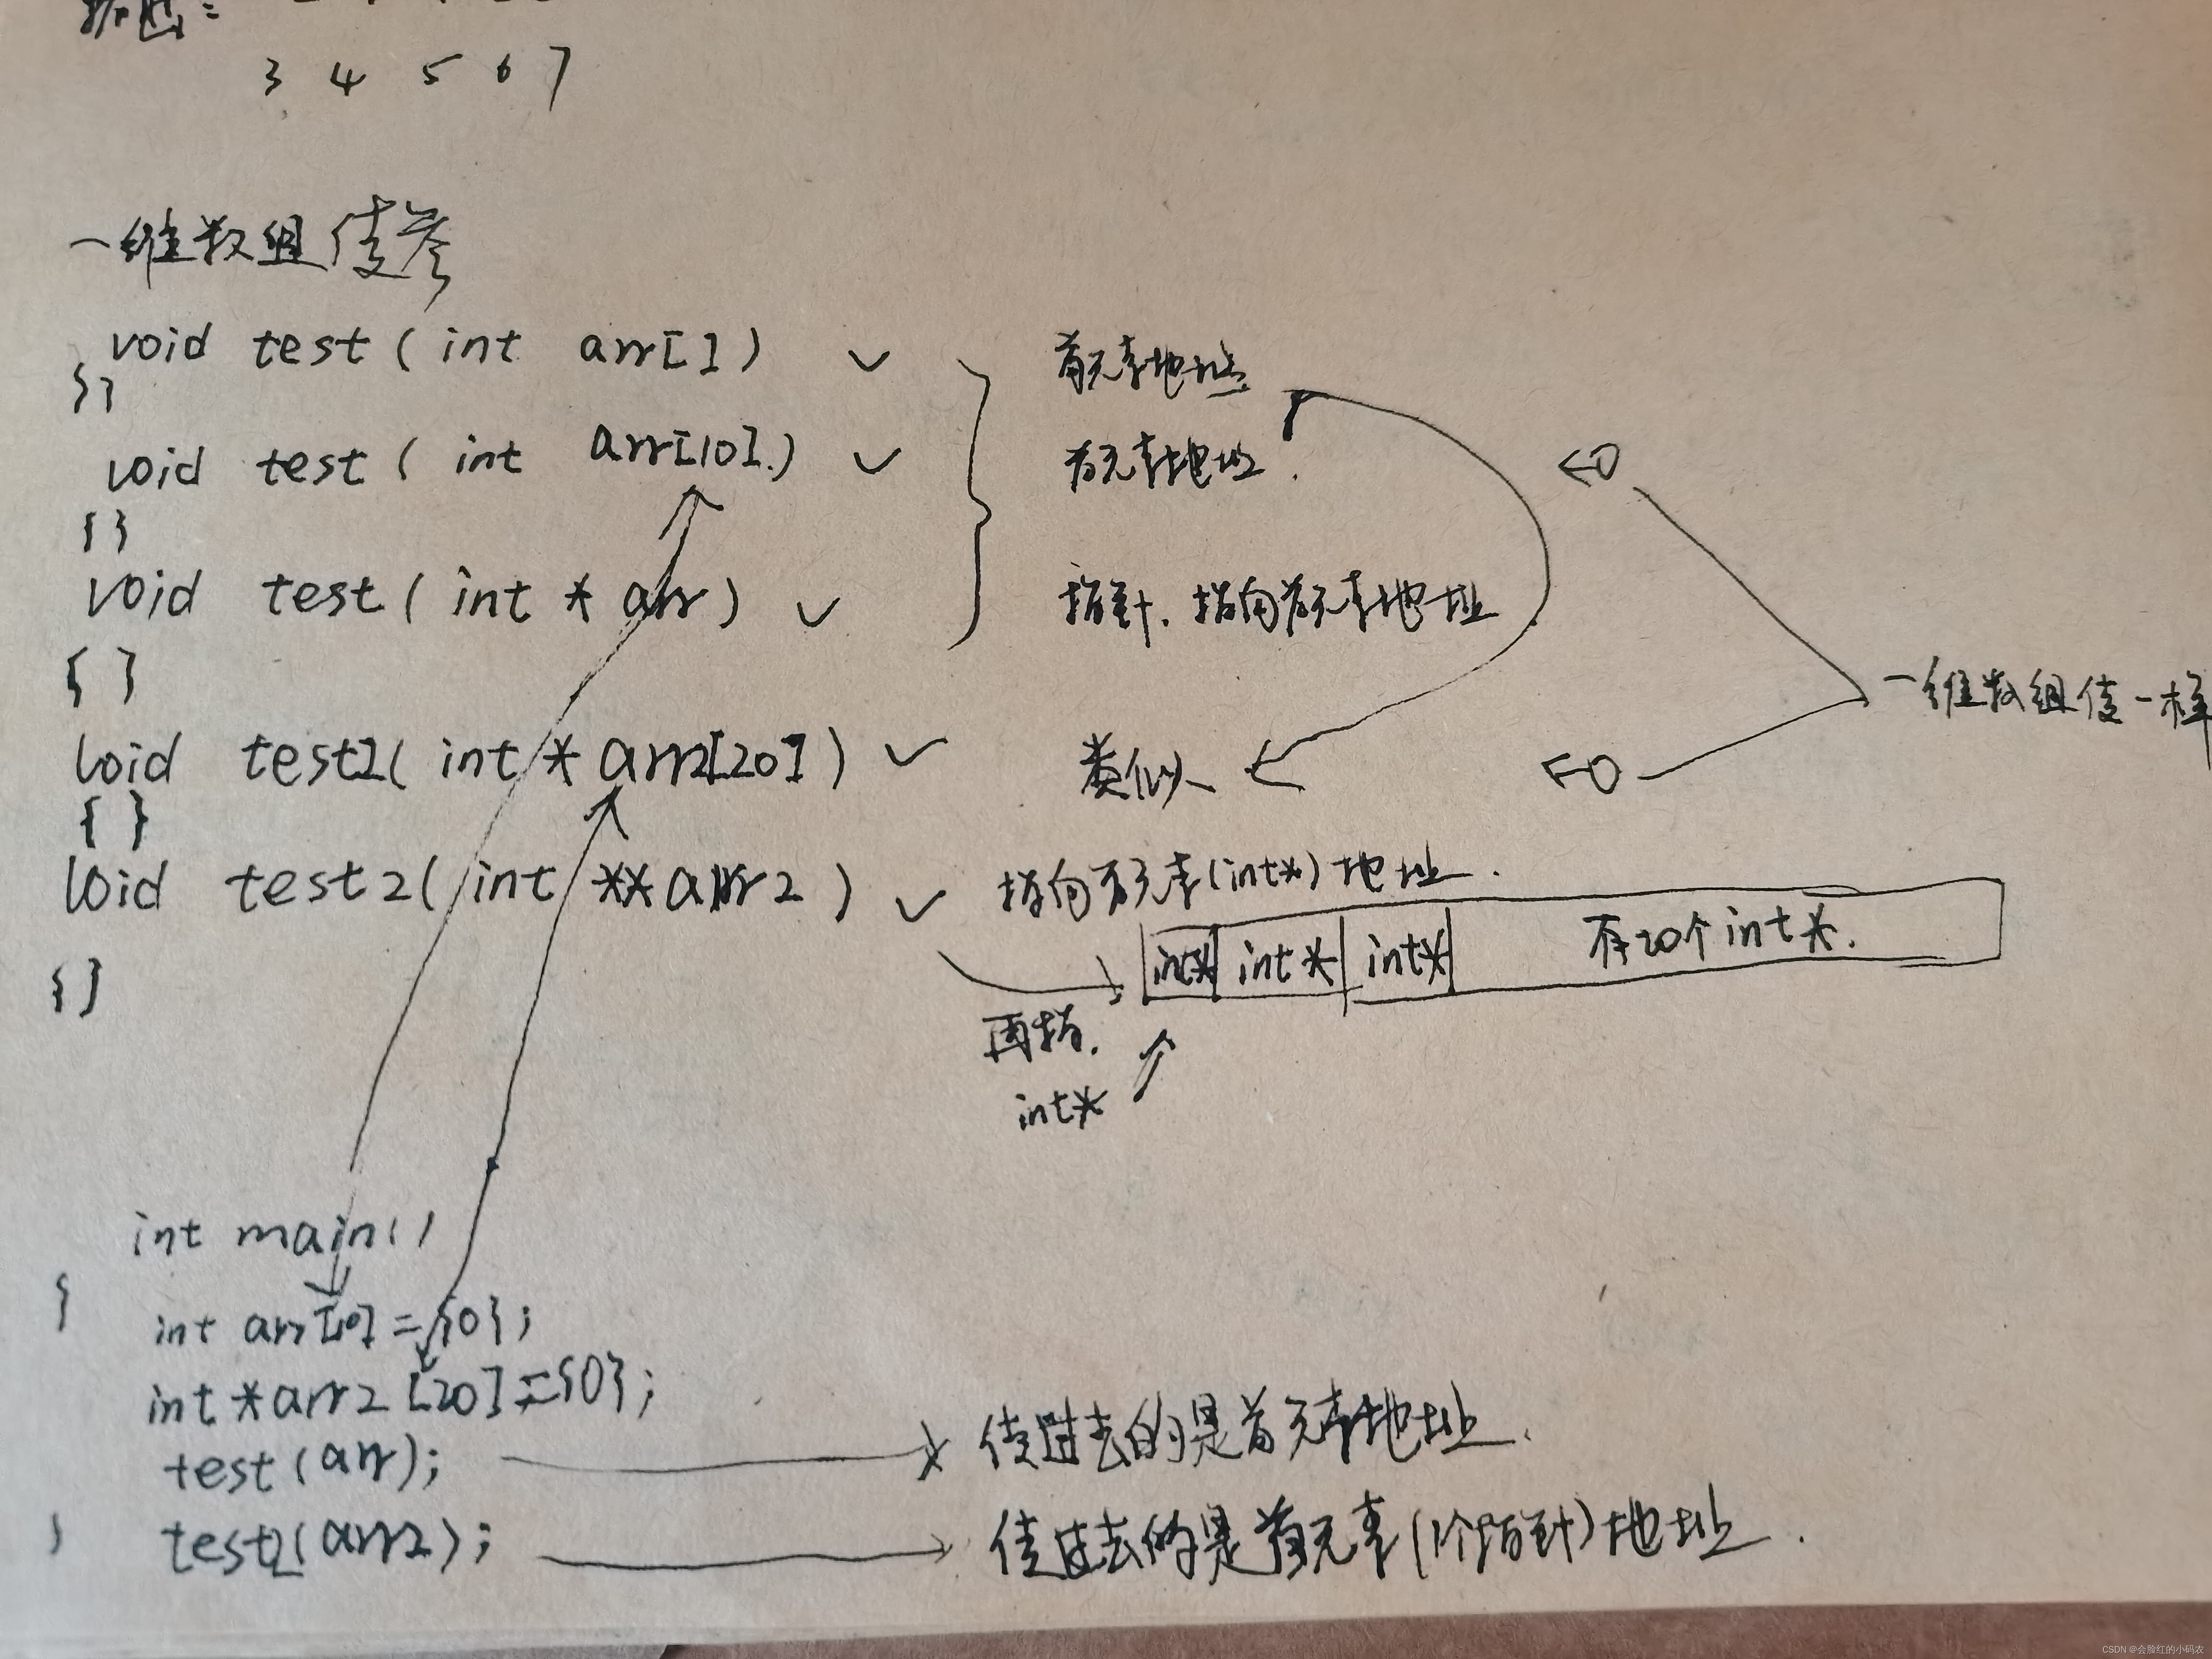 输出:
3 4 5 6 7
一维数组传参
void test ( int arr[] ) ✓ 首元素地址.
{}
void test ( int arr[10].) ✓ 首元素地址.
{ }
void test ( int * arr ) ✓ 指针. 指向首元素地址
{ }
一维数组传一样
void test2( int * arr2[20] ) ✓ 类似
{ }
void test2( int **arr2 ) ✓ 指向首元素(int*)地址.
int* int* int* 有20个int*.
{}
再指.
int*
int main()
{
int arr[10] = {0};
int *arr2 [20] = {0};
test (arr); 传过去的是首元素地址.
} test2(arr2); 传过去的是首元素(1个指针)地址.
CSDN @会脸红的小码农